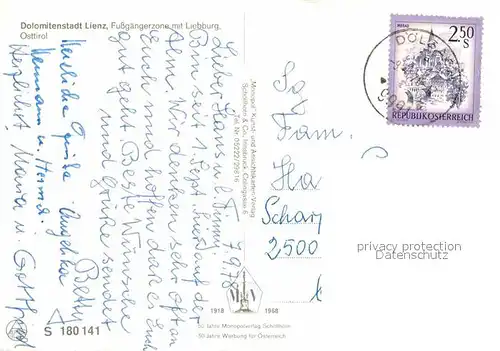 Dolomitenstadt Lienz, Fußgängerzone mit Liebburg,
Osttirol
Lieber Hans u. b.
7.9.78
seit 1. Sept. hier auf der
Alm. Wir denken sehr oft an
Euch und hoffen daß es Euch
gut geht. Beste Wünsche
und Grüße sendet
Betty
Herzliche Grüße Angelika
Hermann u.
Herzlichst Maria u. Gottfried
S 180 141
Monopol Kunst- und Ansichtskarten-Verlag
Schöllhorn & Co., Innsbruck, Colingasse 6
Tel. Nr. 05222/29816
1918 1968
50 Jahre Monopolverlag Schöllhorn
50 Jahre Werbung für Österreich
2.50
S
REPUBLIK ÖSTERREICH
DÖL
Fam.
Ha
Schar
2500
privacy protection
Datenschutz